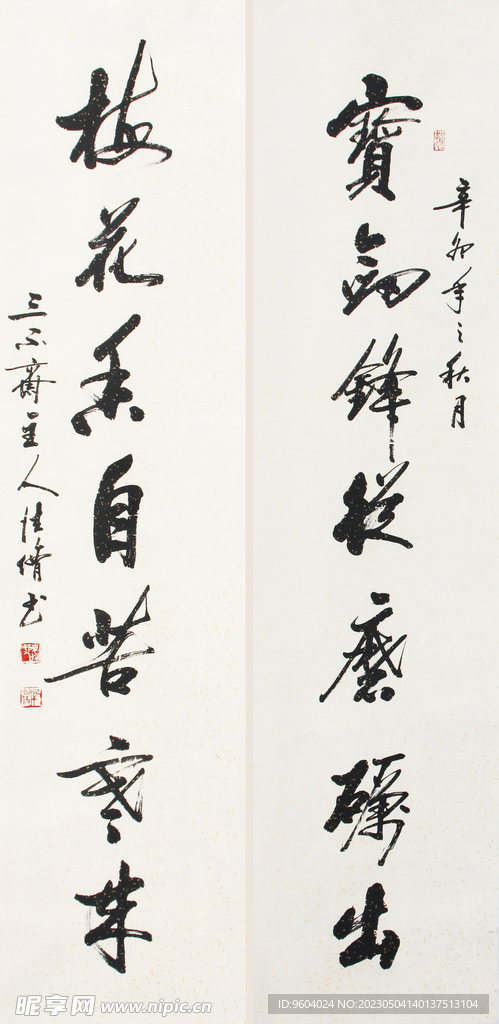 辛卯年之秋月
寶劍鋒從磨礪出
梅花香自苦寒來
三不齋主人佳僑书
昵享网 www.nipic.cn
ID:9604024 NO:20230504140137513104